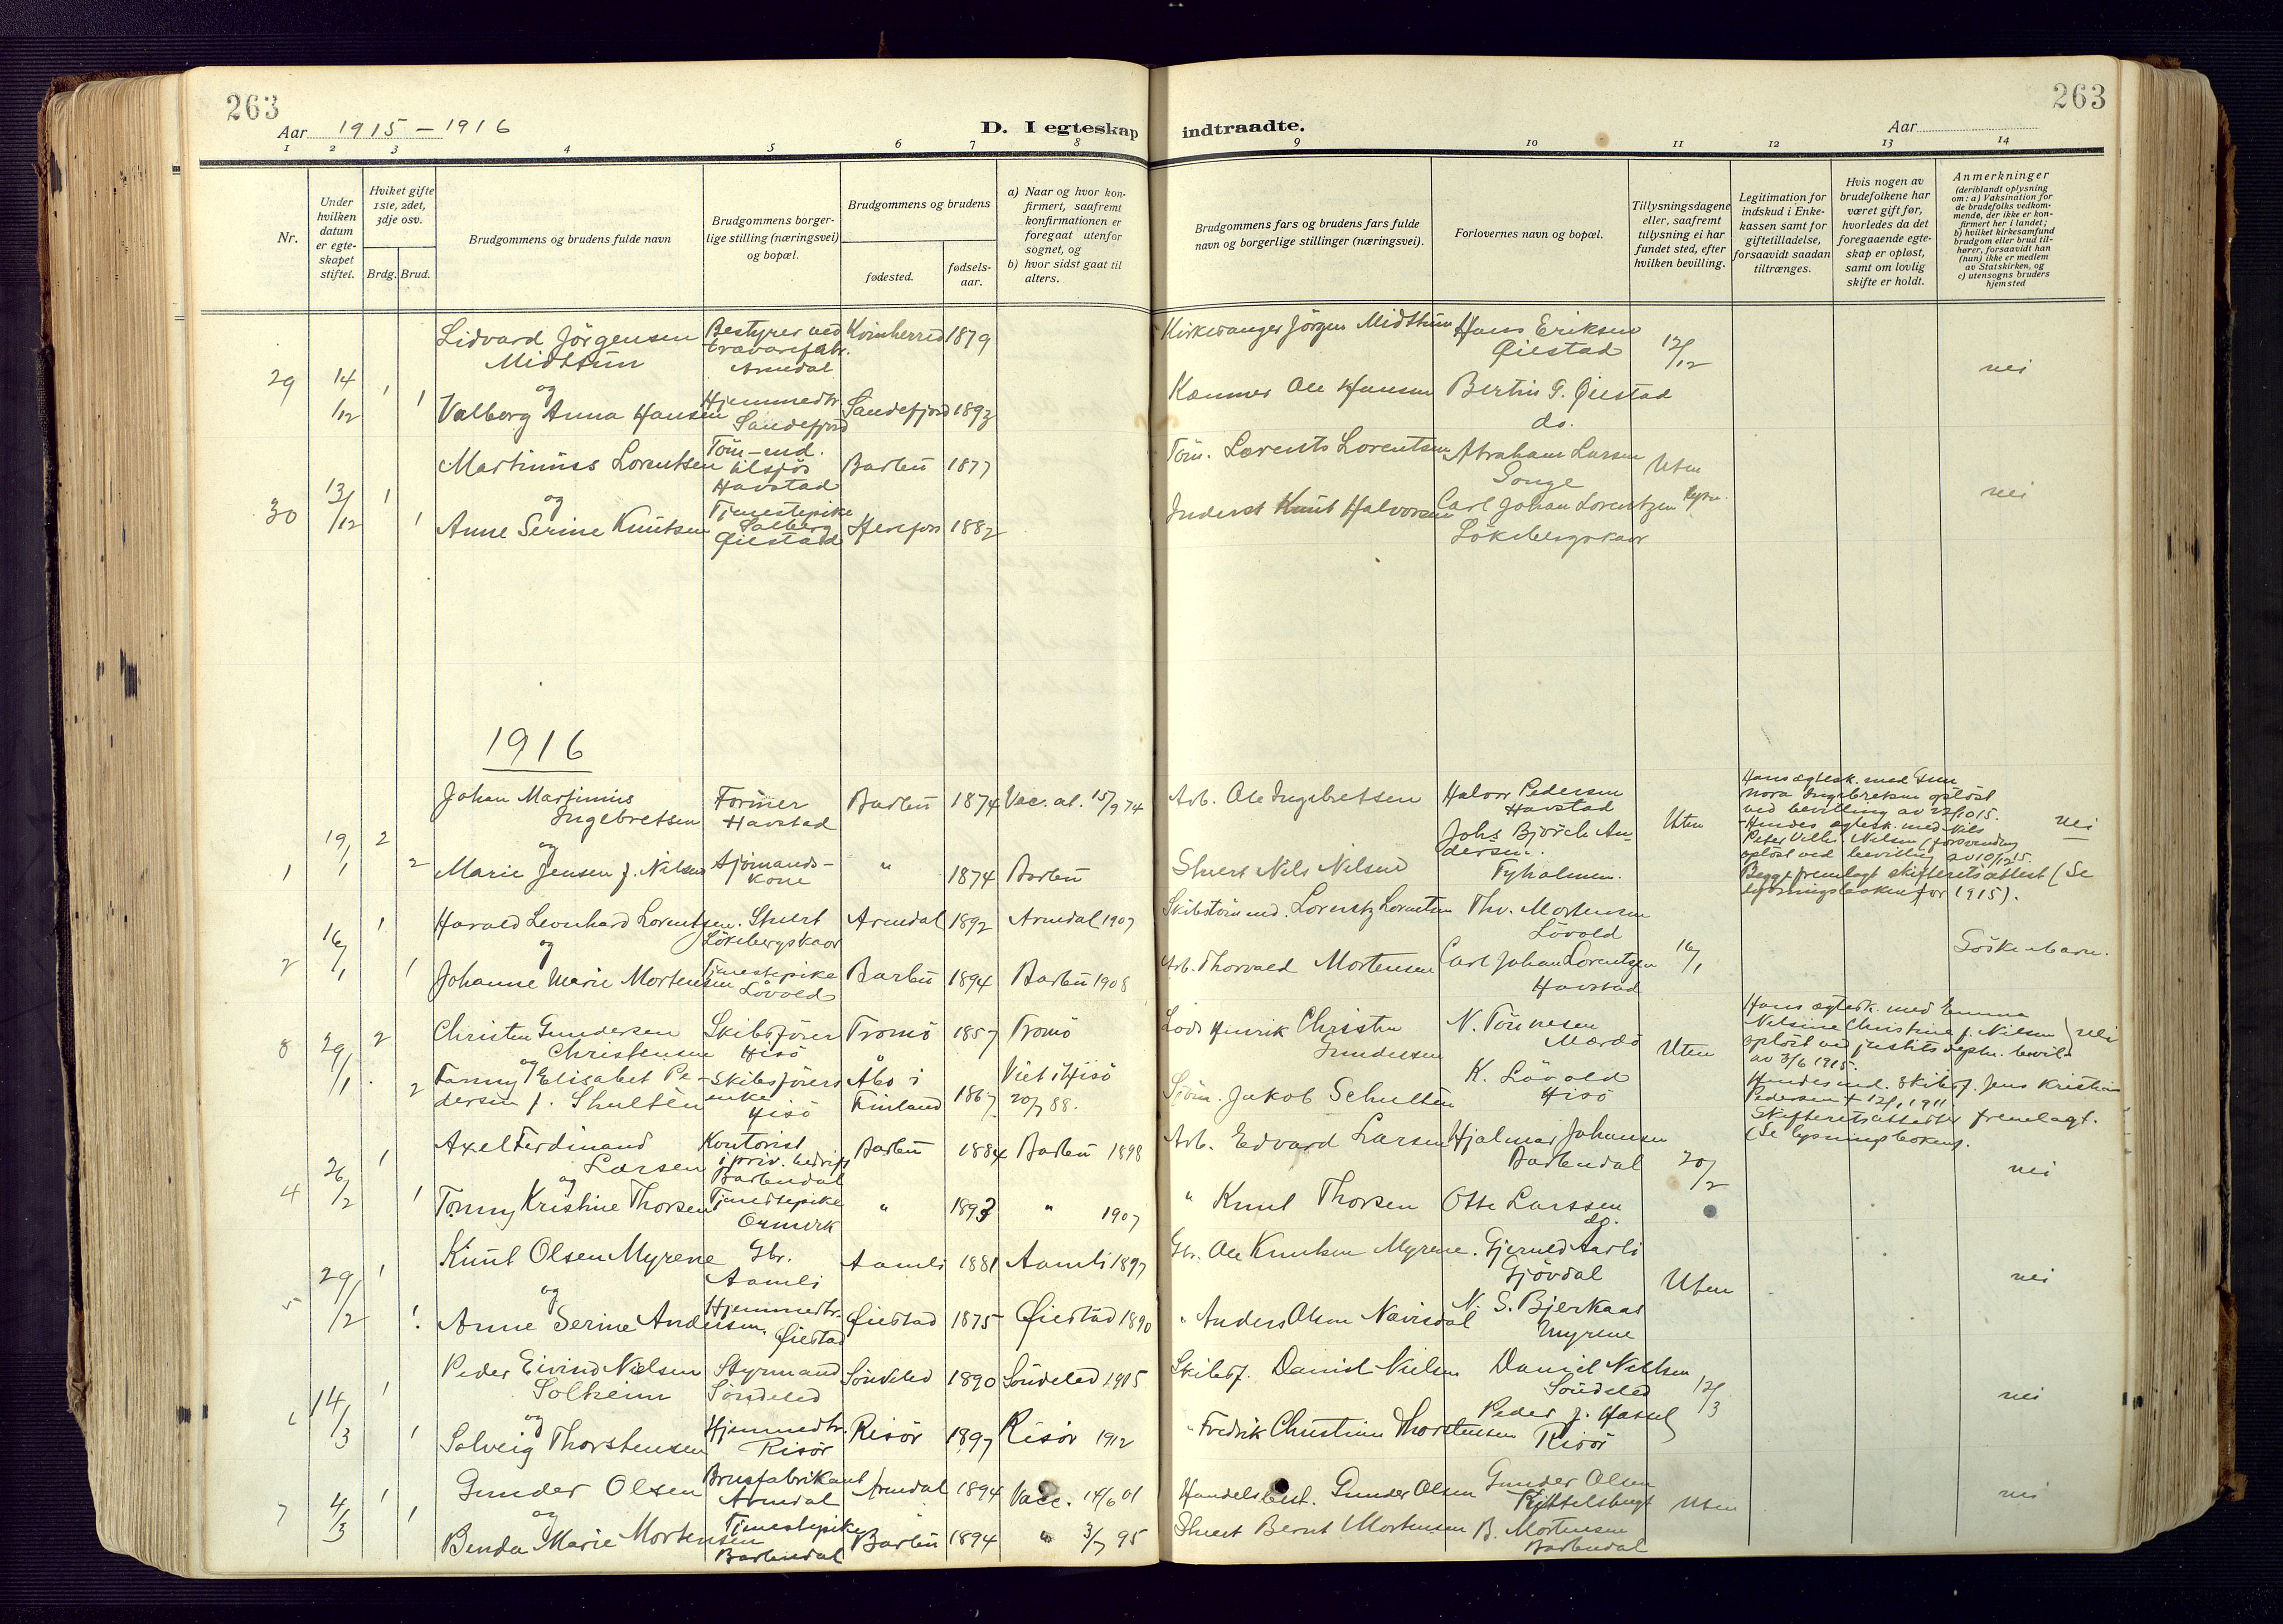 263
Aar 1915 – 1916
D. I egteskap
indtraadte.
Aar
263
1 2 3 4 5 6 7 8 9 10 11 12 13 14
Nr.
Under hvilken datum er egteskapet stiftet.
Hvilket gifte 1ste, 2det, 3dje osv.
Brdg. Brud.
Brudgommens og brudens fulde navn
Brudgommens borgerlige stilling (næringsvei) og bopæl.
Brudgommens og brudens
fødested.
fødselsaar.
a) Naar og hvor konfirmert, saafremt konfirmationen er foregaat utenfor sognet, og
b) hvor sidst gaat til alters.
Brudgommens fars og brudens fars fulde navn og borgerlige stillinger (næringsvei).
Forlovernes navn og bopæl.
Tillysningsdagene eller, saafremt tillysning ei har fundet sted, efter hvilken bevilling.
Legitimation for indskud i Enkekassen samt for giftetilladelse, forsaavidt saadan tiltrænges.
Hvis nogen av brudefolkene har været gift før, hvorledes da det foregaaende egteskap er opløst, samt om lovlig skifte er holdt.
Anmerkninger
(deriblandt oplysning om: a) Vaksination for de brudefolks vedkommende, der ikke er konfirmert her i landet;
b) hvilket kirkesamfund brudgom eller brud tilhører, forsaavidt han (hun) ikke er medlem av Statskirken, og
c) utensogns bruders hjemsted
29 14/12 1 1
Lidvard Jörgensen Midttün
Bestyrer ved
Arendal
Kvinherred 1879
Jörgen Midttün
Hans Eriksen Øiestad
12/12
nei
og
Valborg Anna Hansen
Hjemmedtr. Sandefjord
Sandefjord 1893
Kæmner Ole Hansen
Bertin G. Øiestad
do.
30 13/12 1 1
Martinius Lorentsen
Töm-md. tilsjös Havstad
Barbu 1877
Töm. Lorents Lorentsen
Abraham Larsen Songe
Uten
nei
og
Anne Serine Knutsen
Tjenestepike
Solberg Øiestad
Herefoss 1882
Inderst Knut Halvorsen
Carl Johan Lorentzen
Löksbergskaar
1916
1 19/1 2 2
Johan Martinius Ingebretsen
Former Havstad
Barbu 1874 Vac. at. 15/9 74
Arb. Ole Ingebretsen
Halvor Pedersen Havstad
Uten
Hans egtesk. med
Nora Ingebretsen opløst
ved bevilling av 22/10 15.
Hendes egtesk. med Nils
Peter Vilh. Nilsen (forsvunden)
opløst ved bevilling av 10/12 15.
Begge fremlagt skifteretsattest (Se
lysningsboken for 1915).
nei
og
Marie Jensen f. Nilsen
Sjömandskone
" 1874 Barbu
Stuert Nils Nilsen
Johs Bjorch Andersen. Tyholmen.
2 16/1 1 1
Harald Leonhard Lorentsen.
Stuert Löksbergskaar
Arendal 1892 Arendal 1907
Skibstömmd. Lorentz Lorentsen
Thv. Mortensen Lövold
16/1
Söskenbarn.
og
Johanne Marie Mortensen
Tjenestepike Lövold
Barbu 1894 Barbu 1908
Arb. Thorvald Mortensen
Carl Johan Lorentzen Havstad
8 29/1 2 2
Christen Gundersen Christensen
Skibsförer Hisö
Tromö 1857 Tromö
Lods Henrik Christen Gundersen
N. Tönnesen Mærdö
Uten
Hans egtesk. med Emma
Nilsine Christine f. Nilsen
opløst ved justitsdeptm. bevil.
av 3/6 1915.
nei
og
Fanny Elisabet Pedersen f. Shulten
Skibsförers enke Hisö
Åbo i Finland 1867
Viet i Hisö 20/7 88.
Sjöm. Jakob Schulten
K. Lövold Hisö
Hendes md. Skibsf. Jens Kristian
Pedersen + 12/1 1911
Skifteretsattester fremlagt.
(Se lysningsboken).
4 26/2 1 1
Axel Ferdinand Larsen
Kontorist i priv. bedrift Barbudal
Barbu 1884 Barbu 1898
Arb. Edvard Larsen
Hjalmar Johansen Barbudal
20/2
nei
og
Tonny Kristine Thorsen
Tjenestepike
" 1893 " 1907
" Knut Thorsen
Otto Larssen do.
5 29/2 1 1
Knut Olsen Myrene
Gbr. Aamli
Aamli 1881 Aamli 1897
Gbr. Ole Knutsen Myrene.
Gjeruld Aasli Gjövdal
Uten
nei
og
Anne Serine Andersen.
Hjemmedtr. Øiestad
Øiestad 1875 Øiestad 1890
" Anders Olsen Navisdal
N. S. Bjerkaas Myrene
6 14/3 1 1
Peder Eivind Nielsen Solheim
Styrmand Söndeled
Söndeled 1890 Söndeled 1905
Skibsf. Daniel Nielsen
Daniel Nielsen Söndeled
12/3
nei
og
Solveig Thorstensen
Hjemmedtr. Risör
Risör 1897 Risör 1912
" Fredrik Christian Thorstensen
Peder J. Hassel Risör
7 4/3 1 1
Gunder Olsen
Brusfabrikant Arendal
Arendal 1894 Vacc. 14/6 01
Handelsbest. Gunder Olsen
Gunder Olsen Kittelsbugt
Uten
nei
og
Benda Marie Mortensen
Tjenestepike Barbudal
Barbu 1894 " 3/7 95
Stuert Bernt Mortensen
B. Mortensen Barbudal